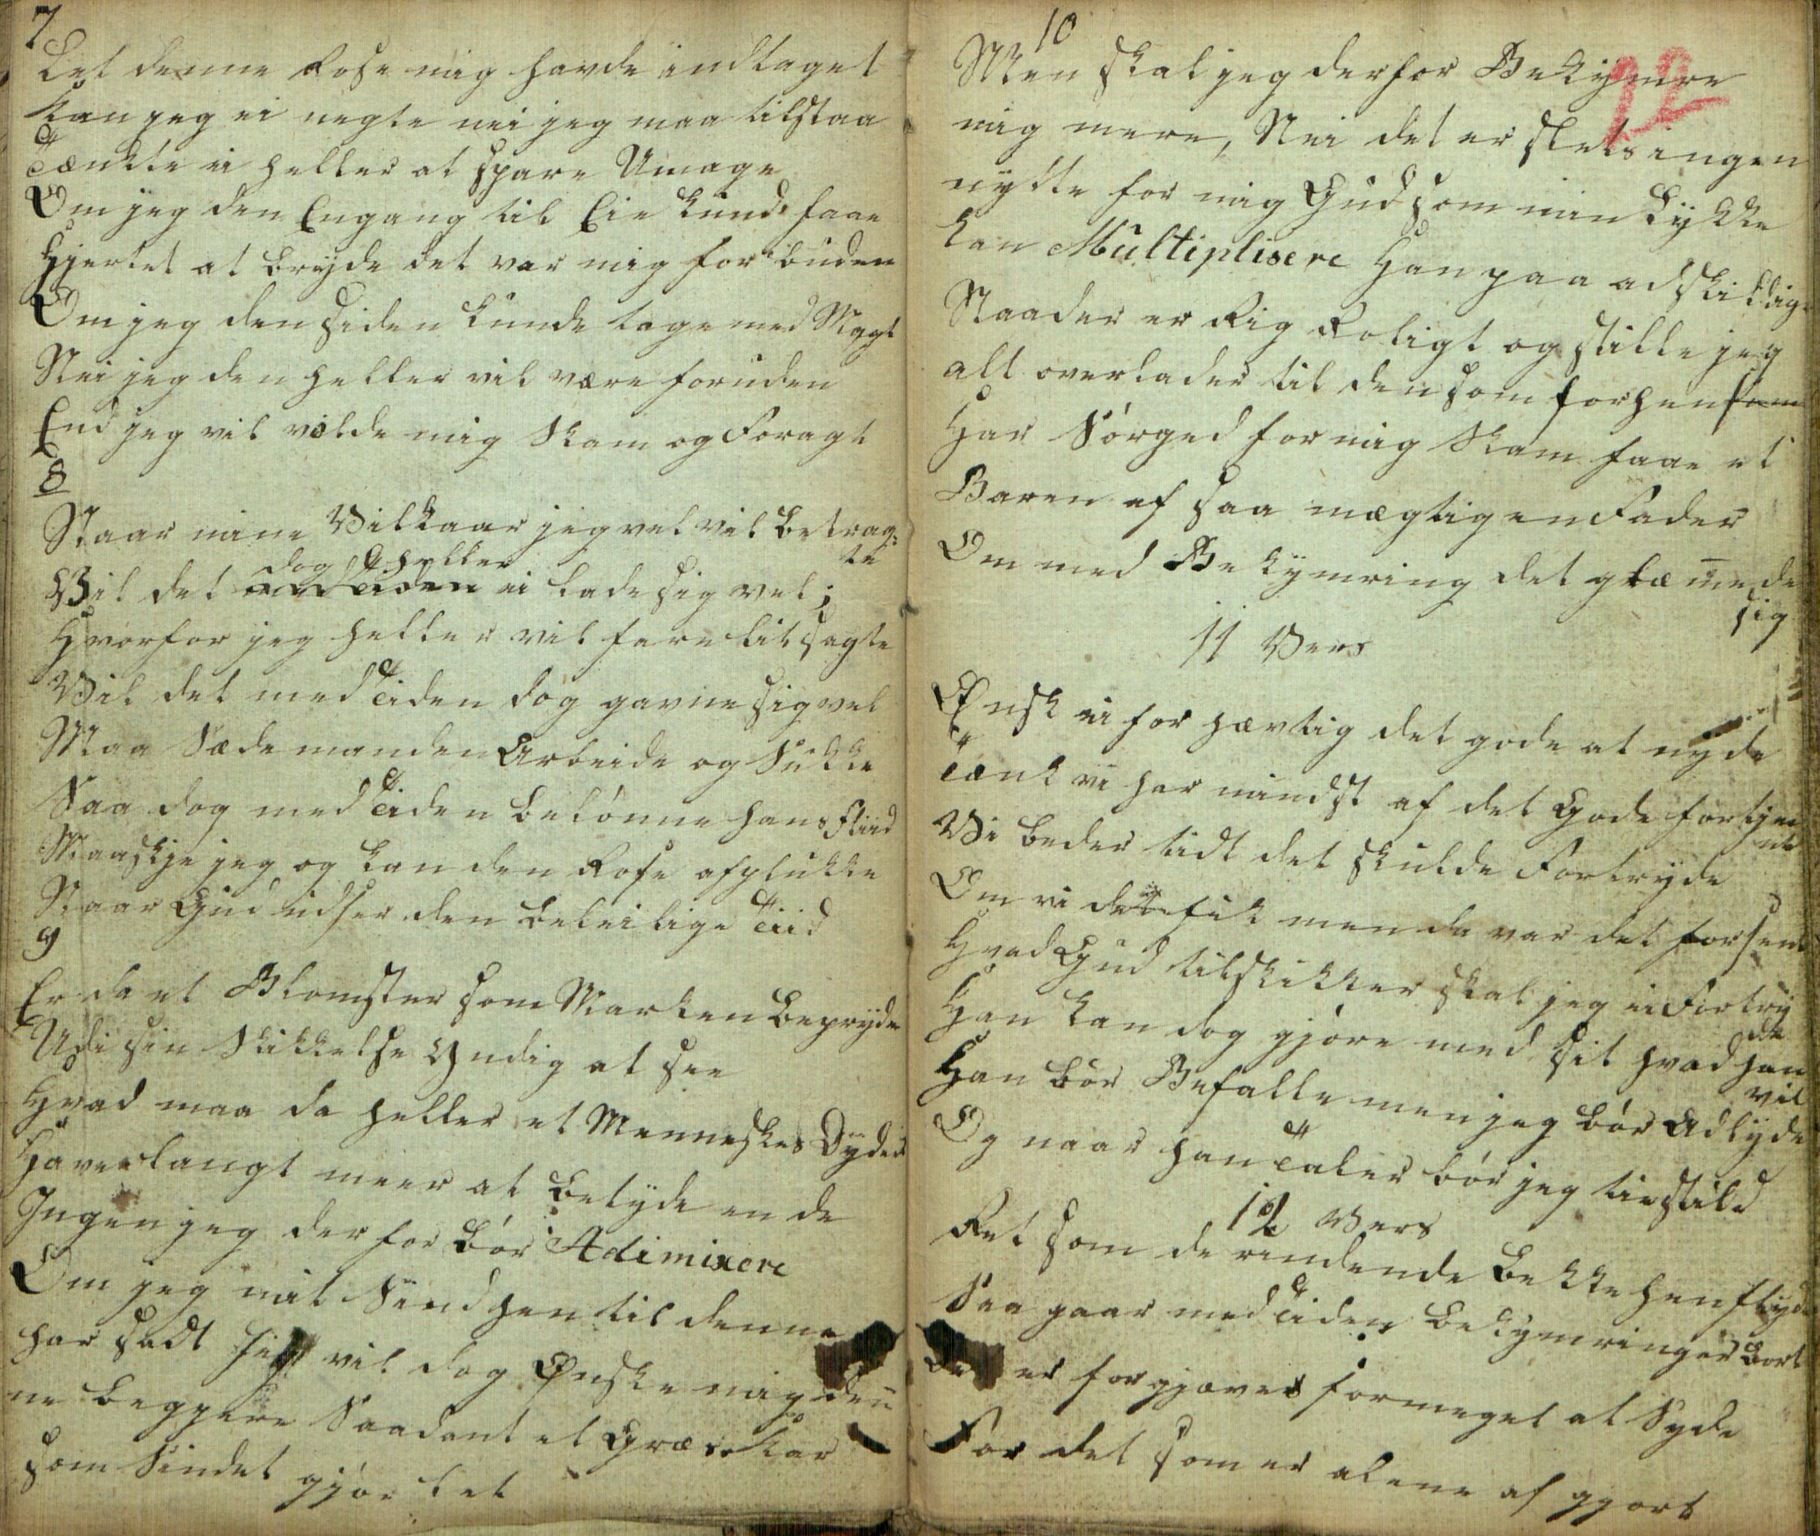 7
Let denne Rose mig havde indtaget
kan jeg ei negte nei jeg maa tilstaa
Tænkte ei heller at spare Umage
Om jeg den Engang til Eie kunde faae
Hjertet at bryde det var mig forbuden
Om jeg den siden kunde tage med Magt
Nei jeg den heller vil være foruden
End jeg vil volde mig Skam og Foragt
8
Naar mine Vilkaar jeg vel vil betrag=
te
dog heller
Vil det med Tiden ei lade sig vel;
Hvorfor jeg heller vil fare lit sagte
Vil det med Tiden dog gavne sig vel
Maa Sædemanden Arbeide og Sukke
Saa dog med Tiden belönne hans Fliid
Maaskje jeg og kan den Rose afplukke
Naar Gud udser den beleilige Tiid
9
Er da et Blomster som Marken bepryde
Udi sin Skikkelse Yndig at see
Hvad maa da heller et Menneskes Dyder
Have langt meer at betyde en de
Ingen jeg derfor bör Adimirere
Om jeg mit Sind hen til denne
har sadt jeg vil dog Önske mig den
ne beggere Saadant et Græs kar
som Sindet gjör let
10
Men skal jeg derfor Bekymre
12
mig mere, Nei det er slets ingen
nytte for mig Gud som min Lykke
kan Multiplisere Han paa adskillig
Naader er Rig Roligt og stille jeg
alt overlader til den som forhen som
Har Sörged for mig Skam faae et
Baren af saa mægtig en Fader
Om med Bekymring det glemmede
sig
11 Vers
Ønsk ei for hævtig det gode at nyde
Tænk vi har mindst af det Gode fortjen
ne
Vi beder tidt det skulde Fortryde
Om vi det fik men da var det for sent
Hvad Gud tilskikker skal jeg ei Fortry
de
Han kan dog gjöre med sit hvad han
vil
Han bör Befalle men jeg bör Adlyde
Og naar han Taler bör jeg tie stild
12 Vers
Ret som de rindende Bekke henflyde
Saa gaar med Tiden Bekymringer Bort
Det er forgjæves formeget at Syde
For det som er alene af gjort